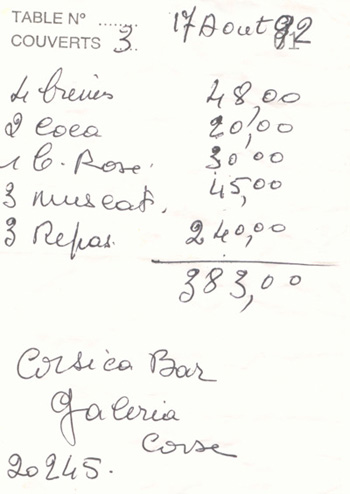 TABLE Nº ........ 17 Aout 82
COUVERTS 3
4 bières 48,00
2 Coca 20,00
1 C. Rose. 30,00
3 muscat. 45,00
3 Repas. 240,00
383,00
Corsica Bar
Galeria
Corse
20245.